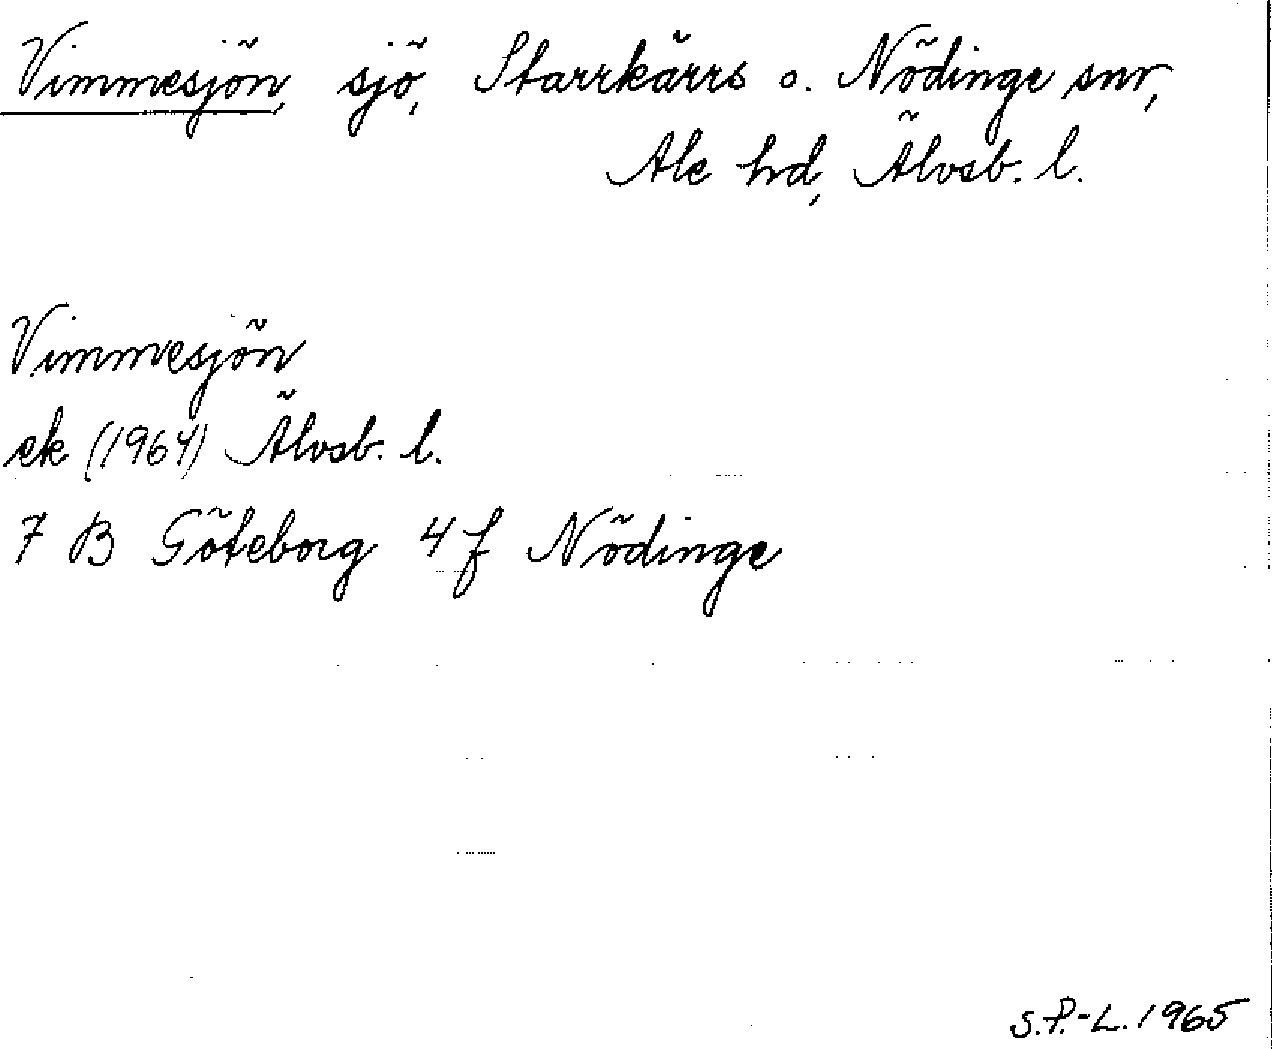 Vimmesjön, sjö, Starrkärrs o. Nödinge snr,
Ale hd, Älvsb. l.
Vimmesjön
ek (1964) Älvsb. l.
7 B Göteborg 4 f Nödinge
S.P.-L. 1965